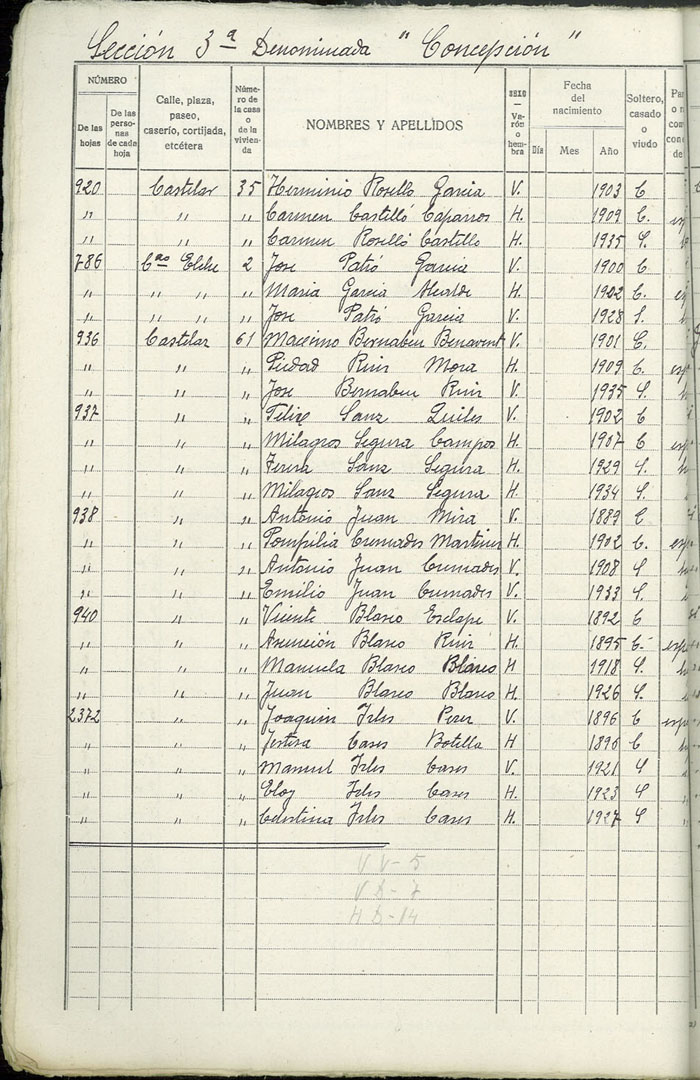 Sección 3ª Denominada "Concepción"
NÚMERO
De las hojas
De las personas de cada hoja
Calle, plaza, paseo, caserío, cortijada, etcétera
Número de la casa o de la vivienda
NOMBRES Y APELLIDOS
SEXO — Varón o hembra
Fecha del nacimiento
Día Mes Año
Soltero, casado o viudo
920 Castelar 35 Herminio Rosello Garcia V. 1903 C
" " " Carmen Castilló Caparros H. 1909 C. esp
" " " Carmen Roselló Castillo H. 1935 S.
786 Cas Elche 2 Jose Patró Garcia V. 1900 C
" " " " Maria Garcia Alcalde H. 1902 C. es
" " " " Jose Patró Garcia V. 1928 S.
936 Castelar 61 Macsimo Bernabeu Benavent V. 1901 C.
" " " Piedad Ruiz Mora H. 1909 C. esp
" " " Jose Bernabeu Ruiz V. 1935 S.
937 " " Felix Sanz Quiles V. 1902 C
" " " Milagros Segura Campos H. 1907 C esp
" " " Teresa Sanz Segura H. 1929 S.
" " " Milagros Sanz Segura H. 1934 S.
938 " " Antonio Juan Mira V. 1889 C
" " " Pompilia Cremades Martinez H. 1902 C. esp
" " " Antonio Juan Cremades V. 1908 S
" " " Emilio Juan Cremades V. 1933 S.
940 " " Vicente Blasco Esclape V. 1892 C
" " " Asunción Blasco Ruiz H. 1895 C. espo
" " " Manuela Blasco Blasco H 1918 S.
" " " Juan Blasco Blasco H. 1926 S.
2372 " " Joaquin Irles Perez V. 1896 C esp
" " " Cases Botella H 1896 C
" " " Manuel Irles Cases V. 1921 S
" " " Eloy Irles Cases H. 1923 S
" " " Celestina Irles Cases H. 1927 S
V V - 5
V D - 7
H D - 14